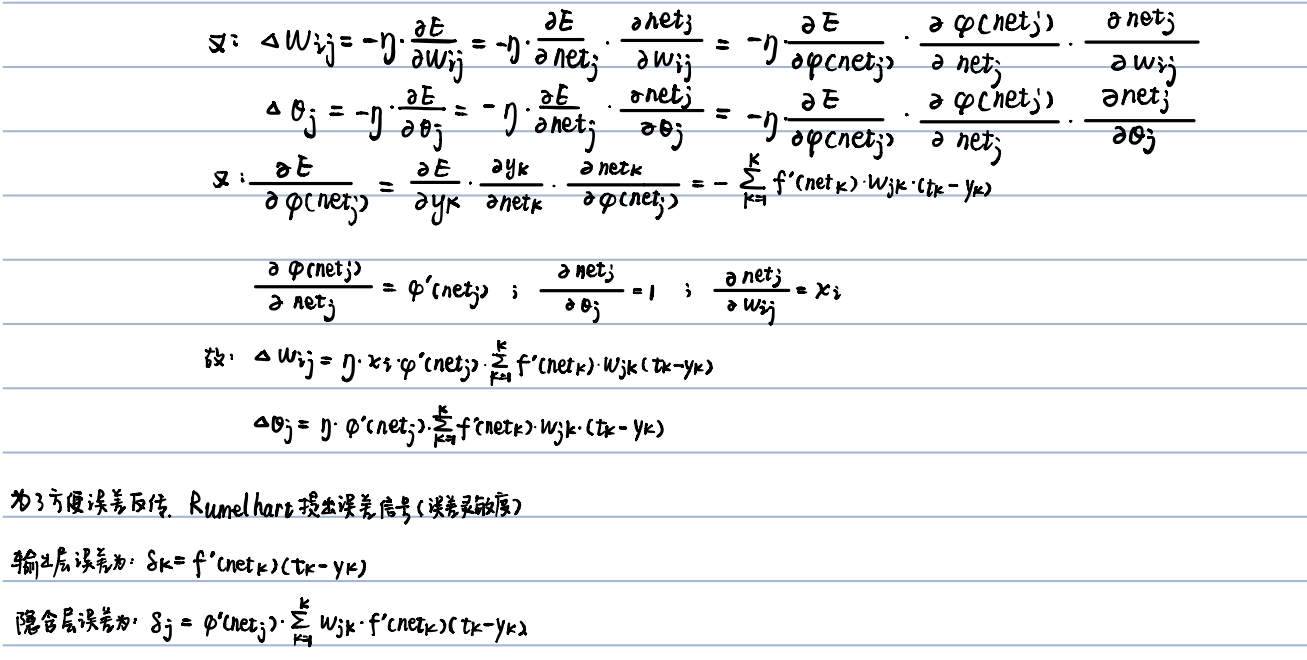 又: ΔWij = -η·∂E/∂Wij = -η·∂E/∂netj · ∂netj/∂wij = -η·∂E/∂φ(netj) · ∂φ(netj)/∂netj · ∂netj/∂wij
Δθj = -η·∂E/∂θj = -η·∂E/∂netj · ∂netj/∂θj = -η·∂E/∂φ(netj) · ∂φ(netj)/∂netj · ∂netj/∂θj
又: ∂E/∂φ(netj) = ∂E/∂yk · ∂yk/∂netk · ∂netk/∂φ(netj) = - Σ_{k=1}^{K} f'(netk)·wjk·(tk-yk)
∂φ(netj)/∂netj = φ'(netj) ; ∂netj/∂θj = 1 ; ∂netj/∂wij = xi
故: ΔWij = η·xi·φ'(netj)·Σ_{k=1}^{K} f'(netk)·Wjk(tk-yk)
Δθj = η·φ'(netj)·Σ_{k=1}^{K} f'(netk)·Wjk·(tk-yk)
为了方便误差反传. Rumelhart 提出误差信号(误差灵敏度)
输出层误差为: δk = f'(netk)(tk-yk)
隐含层误差为: δj = φ'(netj)·Σ_{k=1}^{K} Wjk·f'(netk)(tk-yk)